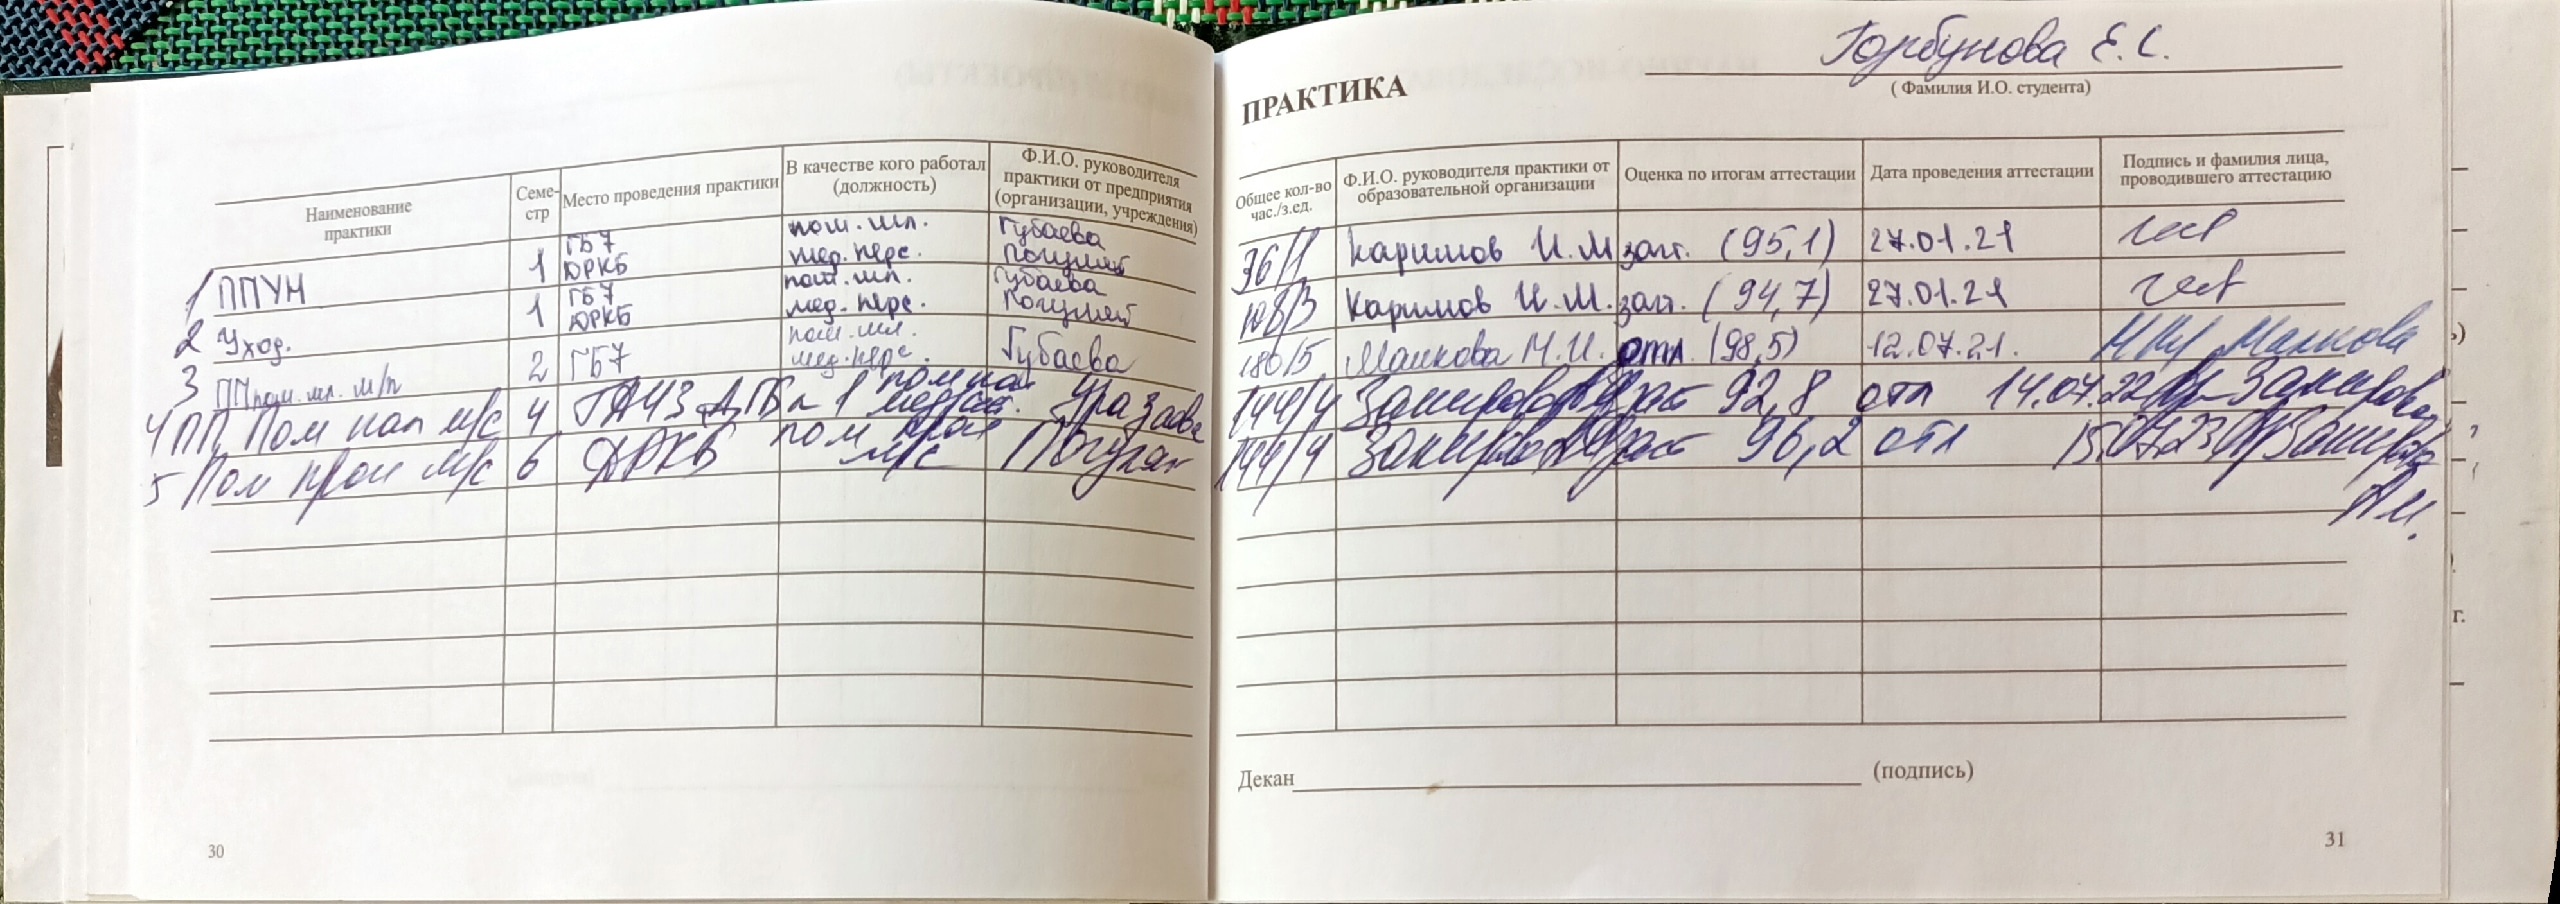 Горбунова Е.С.
( Фамилия И.О. студента)
ПРАКТИКА
Наименование практики
Семе-стр
Место проведения практики
В качестве кого работал (должность)
Ф.И.О. руководителя практики от предприятия (организации, учреждения)
Общее кол-во час./з.ед.
Ф.И.О. руководителя практики от образовательной организации
Оценка по итогам аттестации
Дата проведения аттестации
Подпись и фамилия лица, проводившего аттестацию
1 ППУН 1 ГБ7 ДРКБ пом. мл. мед. перс. Губаева 36/1 Каримов И.М зач. (95,1) 27.01.21
2 Уход. 1 ГБ7 ДРКБ пом. мл. мед. перс. Губаева 108/3 Каримов И.М. зач. (94,7) 27.01.21
3 ПП пом. мл. м/п 2 ГБ7 пом. мл. мед. перс. Губаева 180/5 Малкова М.И. отл. (98,5) 12.07.21. Малкова
4 ПП Пом пал м/с 4 пом пал 144/4 92,8 отл 14.07.22
5 Пом проц м/с 6 ДРКБ пом проц м/с 144/4 96,2 отл 15.07.23
Декан
(подпись)
30
31